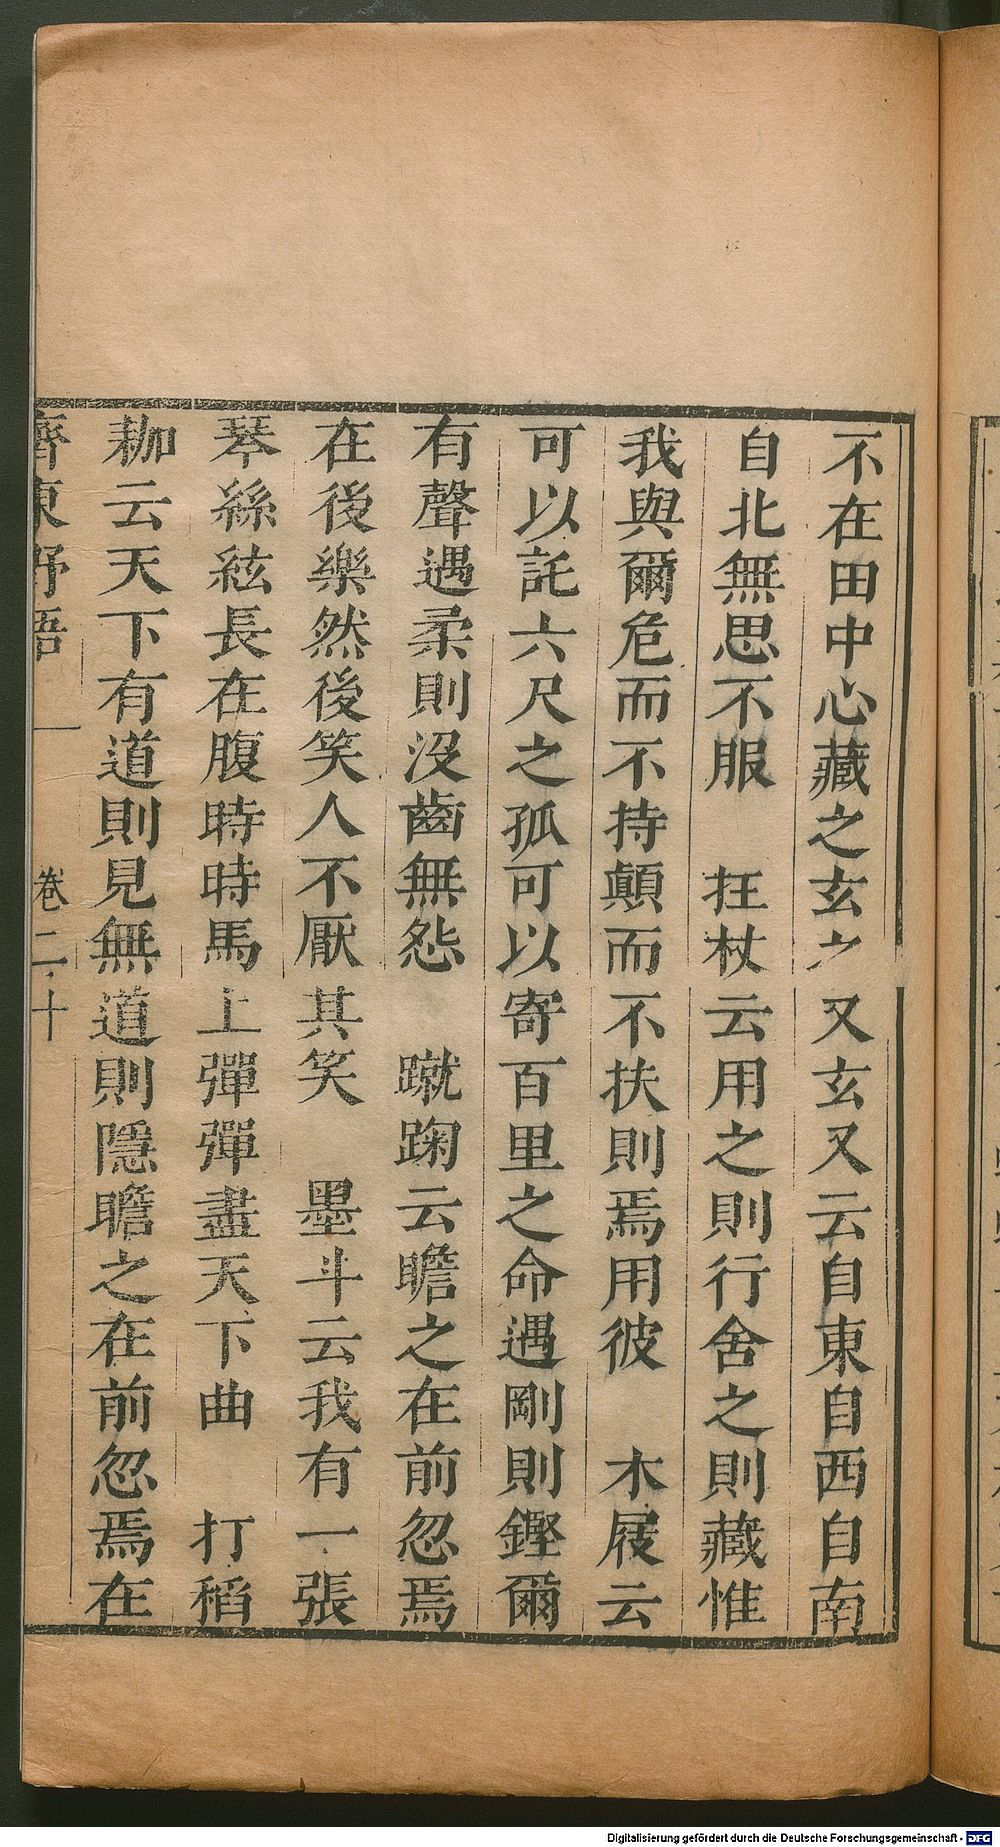 不在田中心藏之玄之又玄又云自東自西自南
自北無思不服　拄杖云用之則行舍之則藏惟
我與爾危而不持顛而不扶則焉用彼　木屐云
可以託六尺之孤可以寄百里之命遇剛則鏗爾
有聲遇柔則沒齒無怨　蹴踘云瞻之在前忽焉
在後樂然後笑人不厭其笑　墨斗云我有一張
琴絲絃長在腹時時馬上彈彈盡天下曲　打稻
耞云天下有道則見無道則隱瞻之在前忽焉在
齊東野語　卷二十
Digitalisierung gefördert durch die Deutsche Forschungsgemeinschaft - DFG